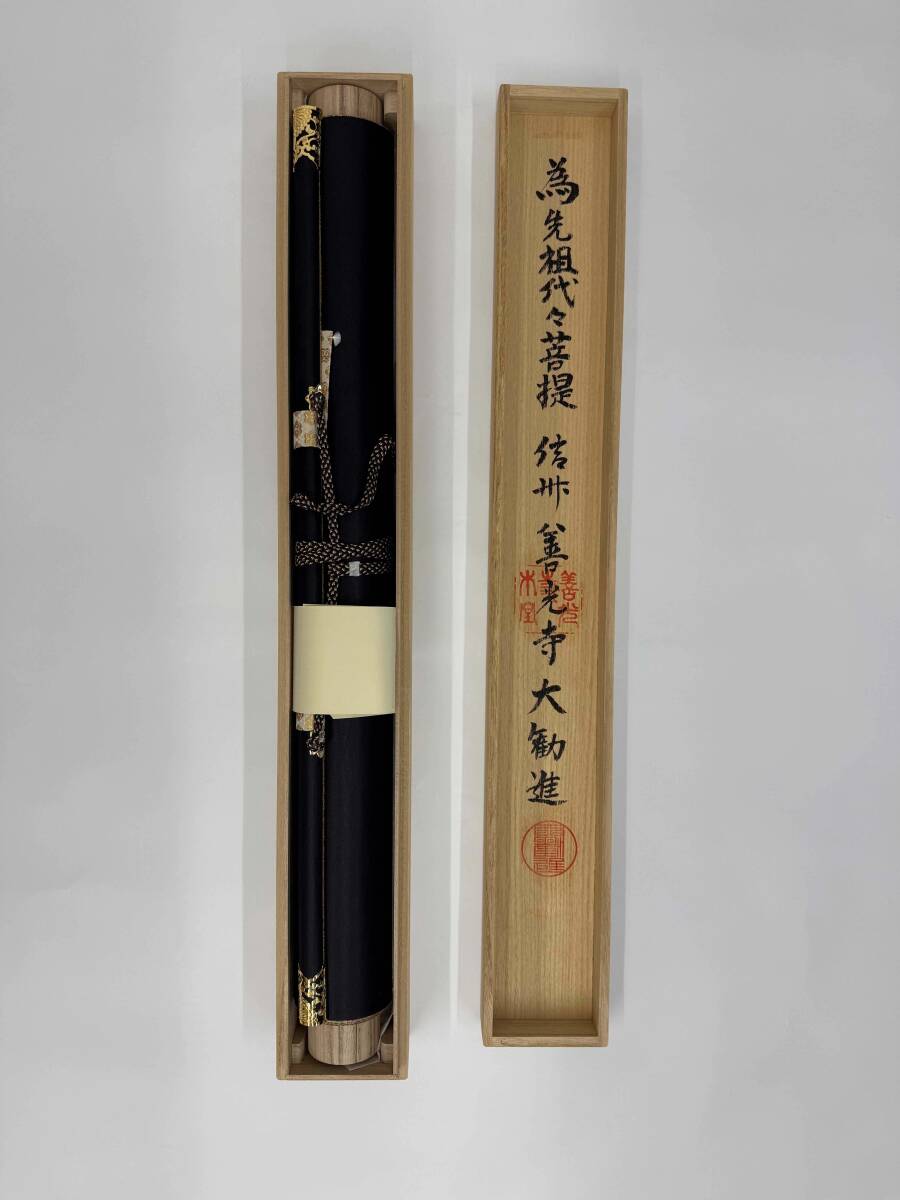 為先祖代々菩提 信州 善光寺 大勧進
善光
寺
本堂